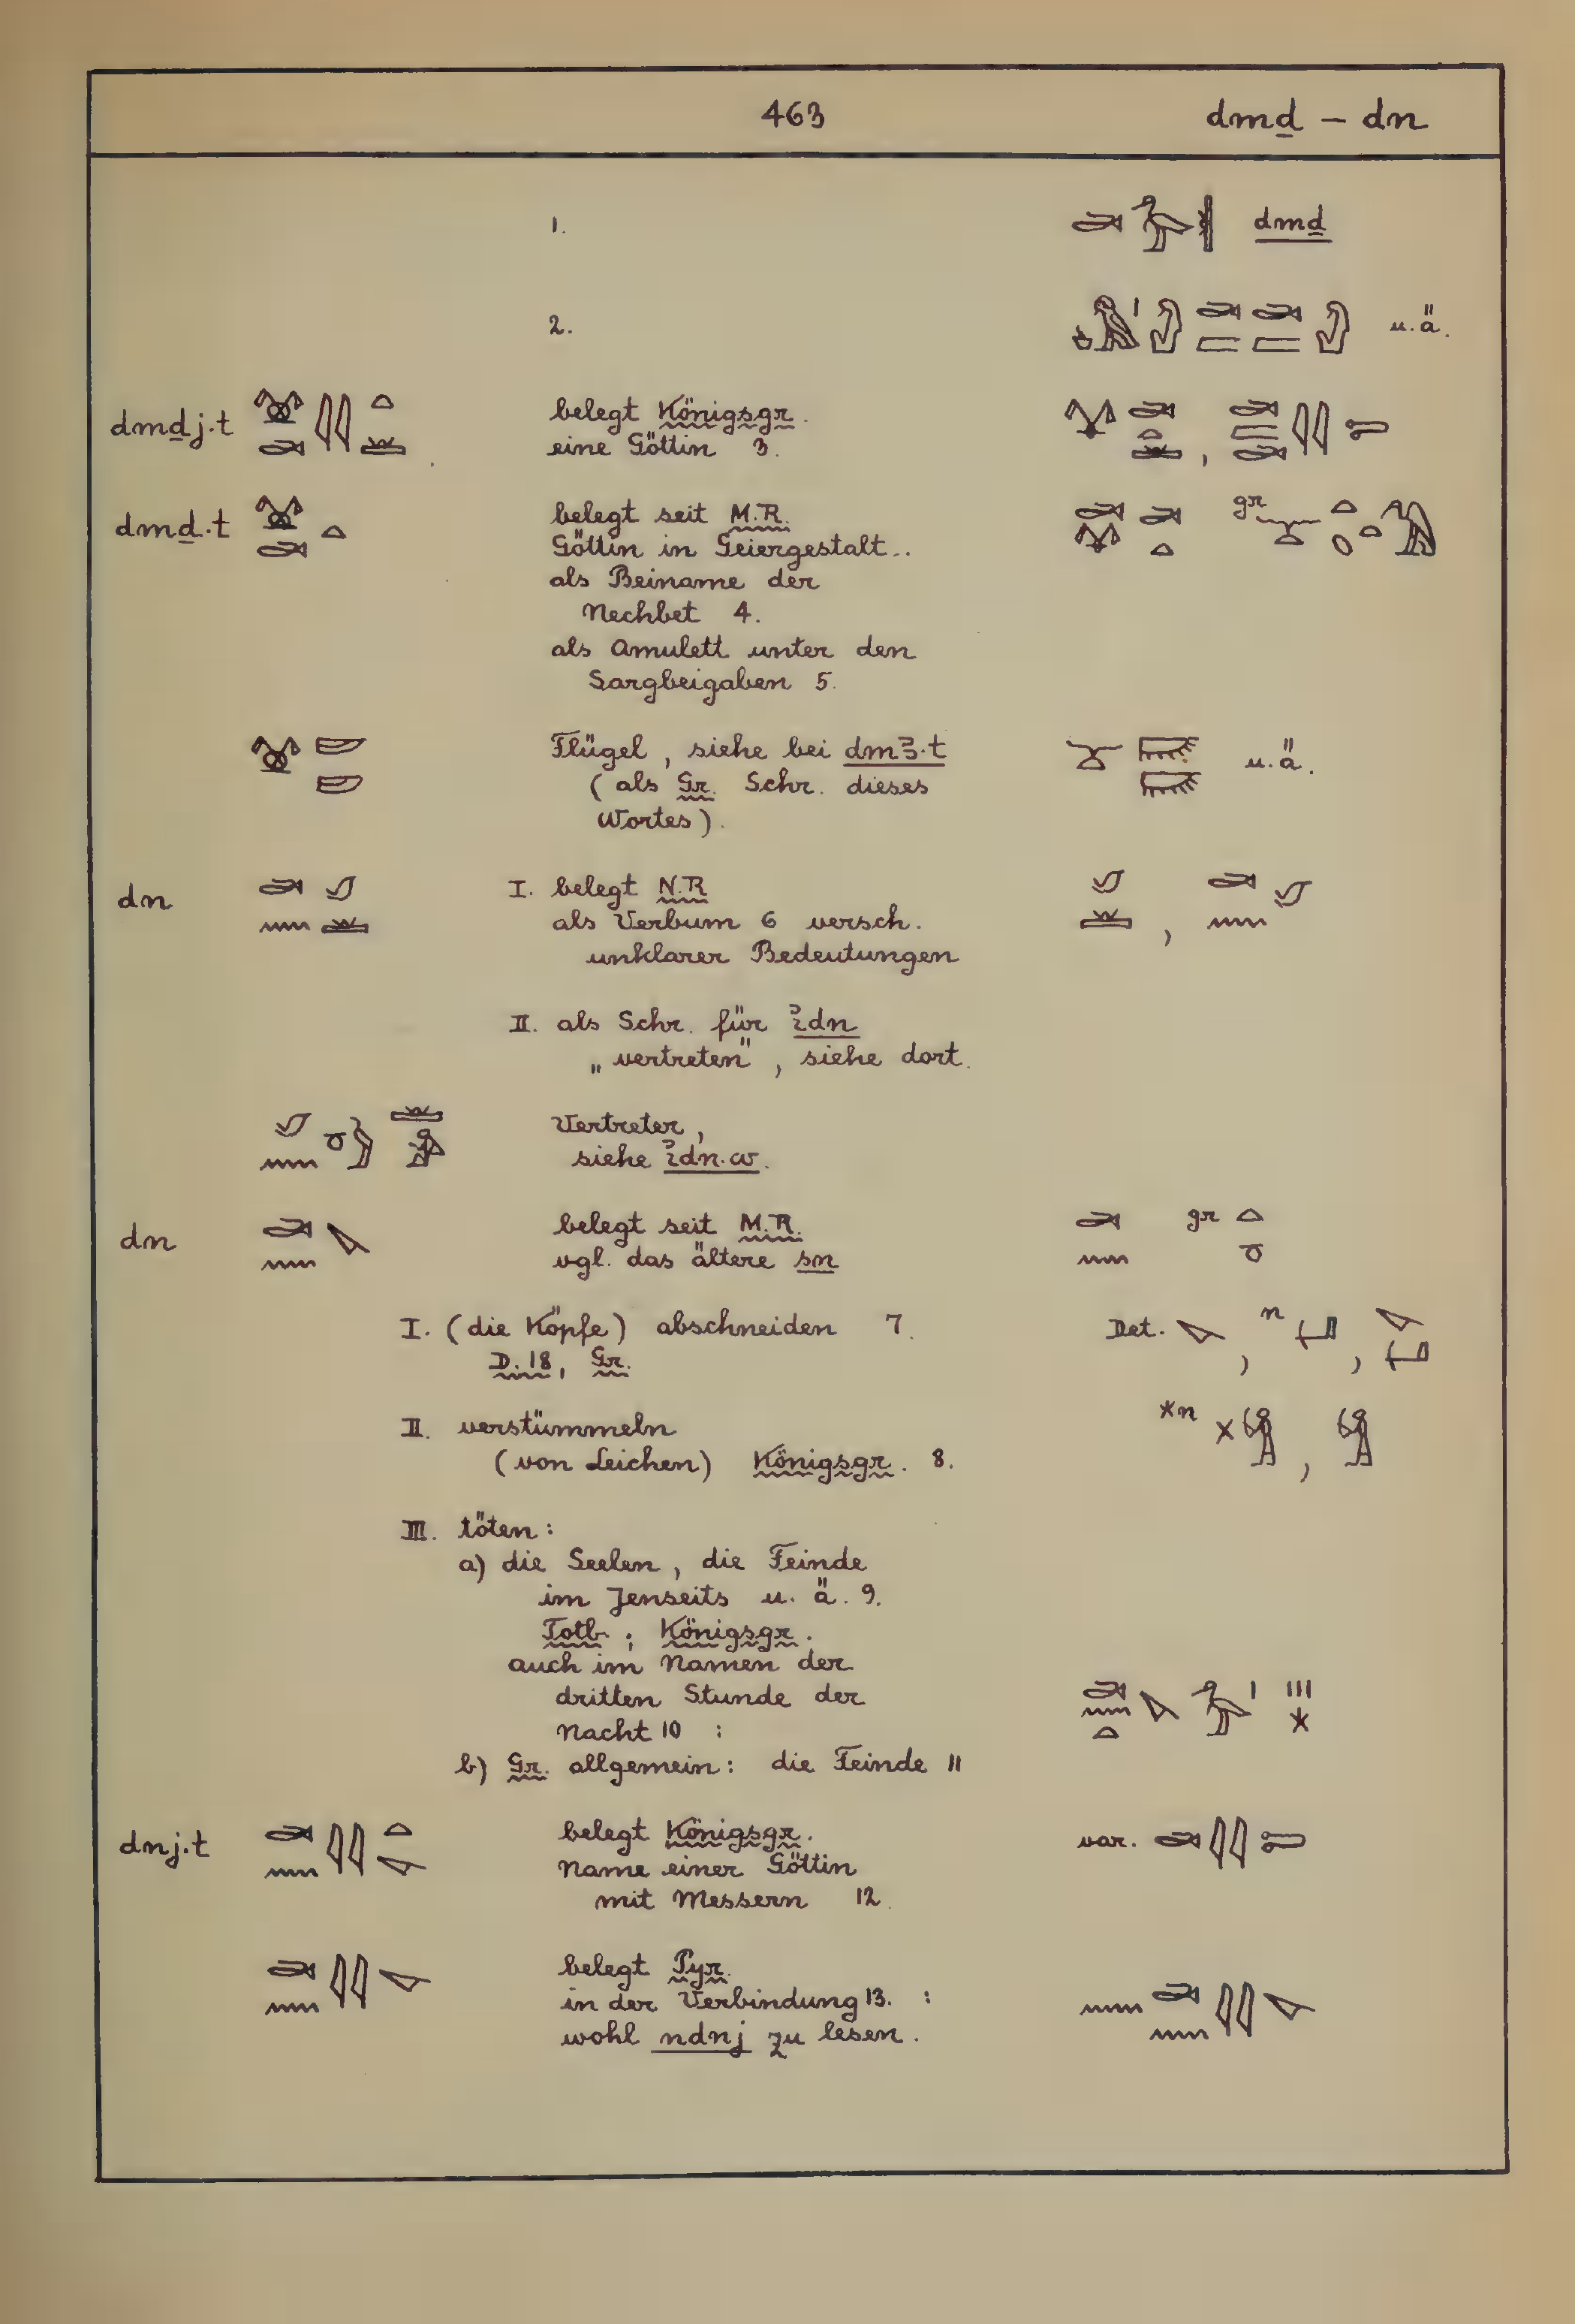 463 dmḏ – dn
1. dmḏ
2. u.ä.
dmḏj.t belegt Königsgr.
eine Göttin 3. ,
dmḏ.t belegt seit M.R. gr
Göttin in Geiergestalt..
als Beiname der
Nechbet 4.
als Amulett unter den
Sargbeigaben 5.
Flügel, siehe bei dmꜣ.t u.ä.
(als Gr. Schr. dieses
Wortes).
dn I. belegt N.R
als Verbum 6 versch. ,
unklarer Bedeutungen
II. als Schr. für ꞽdn
„vertreten", siehe dort.
Vertreter,
siehe ꞽdn.w.
dn belegt seit M.R. gr
vgl. das ältere sn
I. (die Köpfe) abschneiden 7. Det. , n ,
D. 18, Gr.
II. verstümmeln *n ,
(von Leichen) Königsgr. 8.
III. töten:
a) die Seelen, die Feinde
im Jenseits u. ä. 9.
Totb. ; Königsgr.
auch im Namen der
dritten Stunde der
Nacht 10 :
b) Gr. allgemein: die Feinde 11
dnj.t belegt Königsgr. var.
Name einer Göttin
mit Messern 12.
belegt Pyr.
in der Verbindung 13. :
wohl ndnj zu lesen.